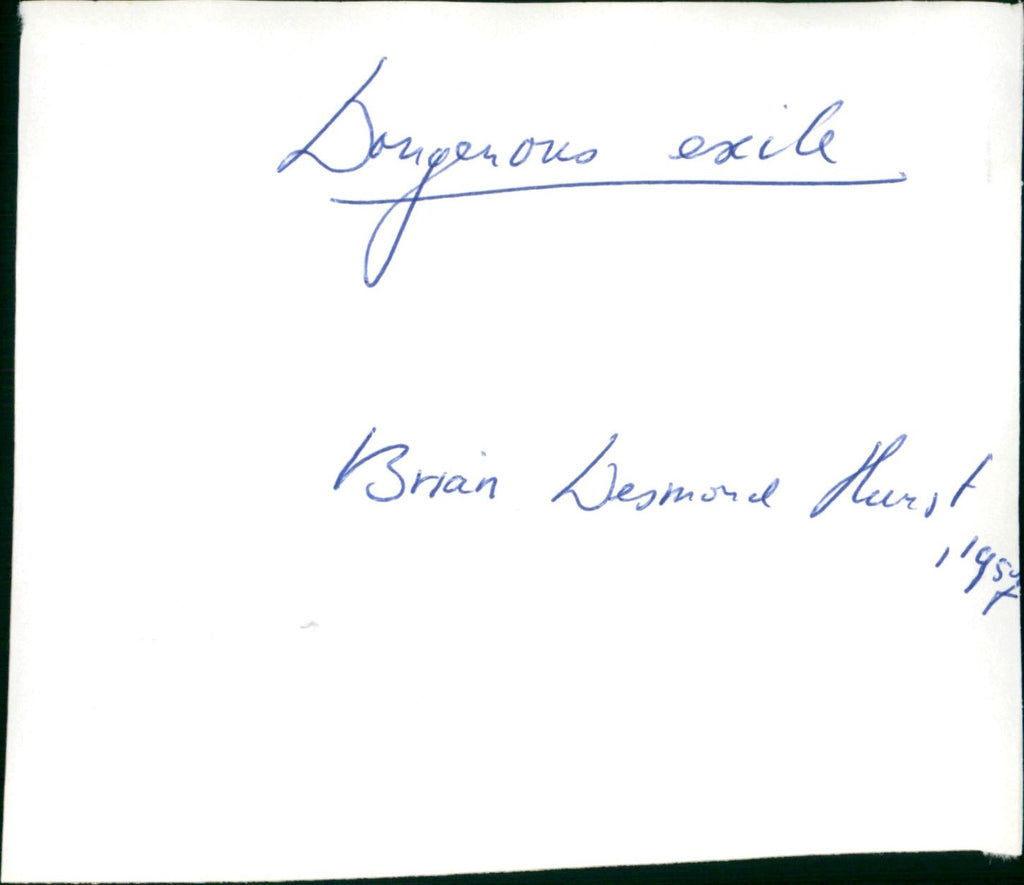 Dangerous exile
Brian Desmond Hurst
, 1957